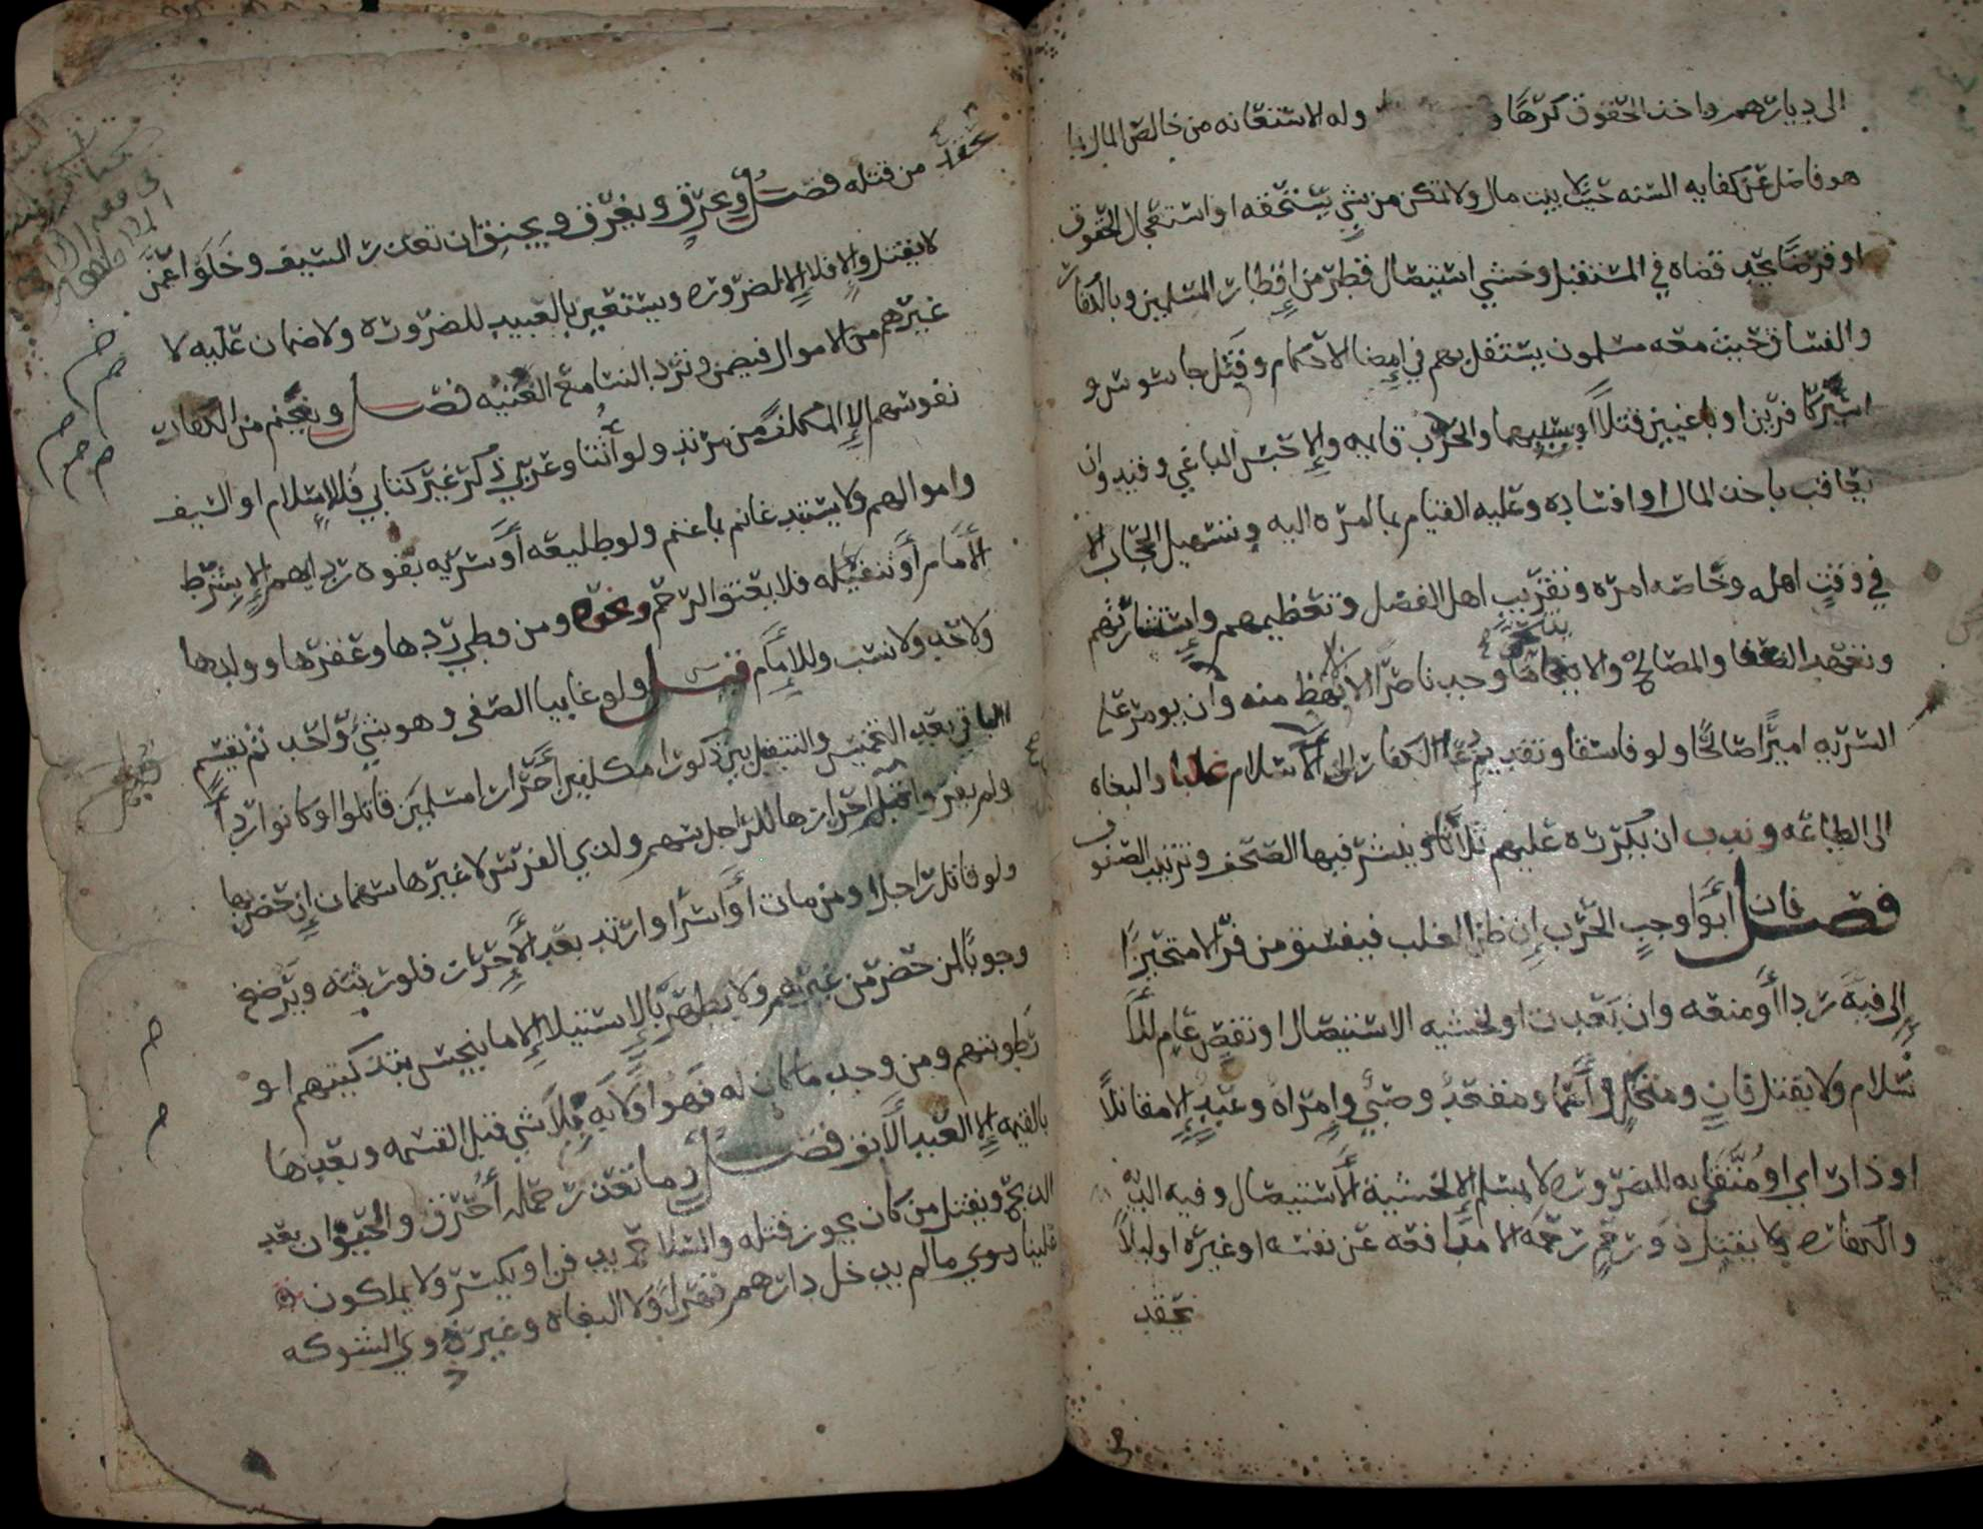 الى ديارهم واخذ الحقوق كرها و وله الاستعانه من خالص المال بما
هو فاضل عن كفايه السنه حيث لا بيت مال ولا تمكن من شي يستحقه او استعجال الحقوق
او قرضا يجد قضاه في المستقبل وخشي استيصال قطر من اقطار المسلمين وبالكفار
والفساق حيث معه مسلمون يستقل بهم في امضا الاحكام وقتل جاسوس و
اسير كافرين او باغيين قتلا او بسببهما والحرب قايمه والا حبس الباغي وقيد وان
يعاقب باخذ المال او افساده وعليه القيام بما امره اليه وتسهيل الحجاب الا
في وقت اهله وخاصه امره وتقريب اهل الفضل وتعظيمهم واستشارتهم
وتعهد الضعفا والمصالح ولا يتنحى ما وجد ناصرا الا لانهض منه وان يومر على
السريه اميرا صالحا ولو فاسقا وتقديم دعا الكفار الى الاسلام والبغاه
الى الطاعه وندب ان يكرره عليهم ثلاثا وينشر فيها الصحف وترتيب الصفوف
فصل فان ابوا وجب الحرب ان ظن الغلب فيفسق من فر الا متحيزا
الى فيه ردا او منعه وان بعدت او لخشيه الاستيصال او نقص عام للا
سلام ولا يقتل فان ومتخل واعما ومقعد وصبي وامراه وعبد الا مقاتلا
او ذا راي او متقى به للضروره لا بمسلم الا لخشية الاستيصال وفيه الديه
والكفاره ولا يقتل ذو رحم رحمه الا مدافعه عن نفسه او غيره او ليلا
يحقد
يحقد من قتله فصل ويحرق ويغرق ويخنق ان تعذر السيف وخلوا عمن
لا يقتل والا فلا الا لضروره ويستعين بالعبيد للضروره ولا ضمان عليه لا
غيرهم من الاموال فيضمن وترد النسا مع الغنيه فصل ويغنم من الكفار
نفوسهم الا المكلف من مرتد ولو انثا وعربي ذكر غير كتابي فللاسلام او السيف
واموالهم ولا يستبد غانم بما غنم ولو طليعه او سريه بقوه ردايهم الا بشرط
الامام او تنفيله فلا يعتق الرحم ونحوه ومن وطي ردها وعقرها وولدها
ولا حد ولا نسب وللامام فصل ولو غايبا الصفي وهو شي واحد ثم يقسم
الباقي بعد التخميس والتنفيل بين ذكور مكلفين احرار مسلمين قاتلوا او كانوا ردا
ولم يفروا قبل احرازها للراجل سهم ولذي الفرس لا غيرها سهمان ان حضر بها
ولو قاتل راجلا ومن مات او اسر او ارتد بعد الاحراز فلورثته ويرضخ
وجوبا لمن حضر من غيرهم ولا يطهر بالاستيلا الا ما ينجس بتذكيتهم او
رطوبتهم ومن وجد ما كان له فهو اولا به بلا شي قبل القسمه وبعدها
بالقيمه الا العبد الابق فصل وما تعذر حمله احرق والحيوان بعد
الذبح ويقتل من كان يجوز قتله والسلاح يدفن او يكسر ولا يملكون
علينا سوى ما لم يدخل دارهم قهرا ولا البغاه وغير ذوي الشوكه